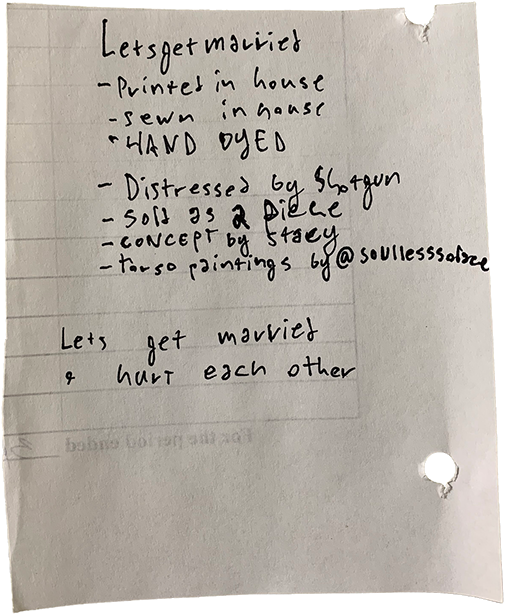 Letsgetmarried
- Printed in house
- sewn in house
- HAND DYED
- Distressed by Shotgun
- Sold as 2 piece
- CONCEPT by Stacy
- torso paintings by @soullesssolace
Lets get married
& hurt each other
For the period ended